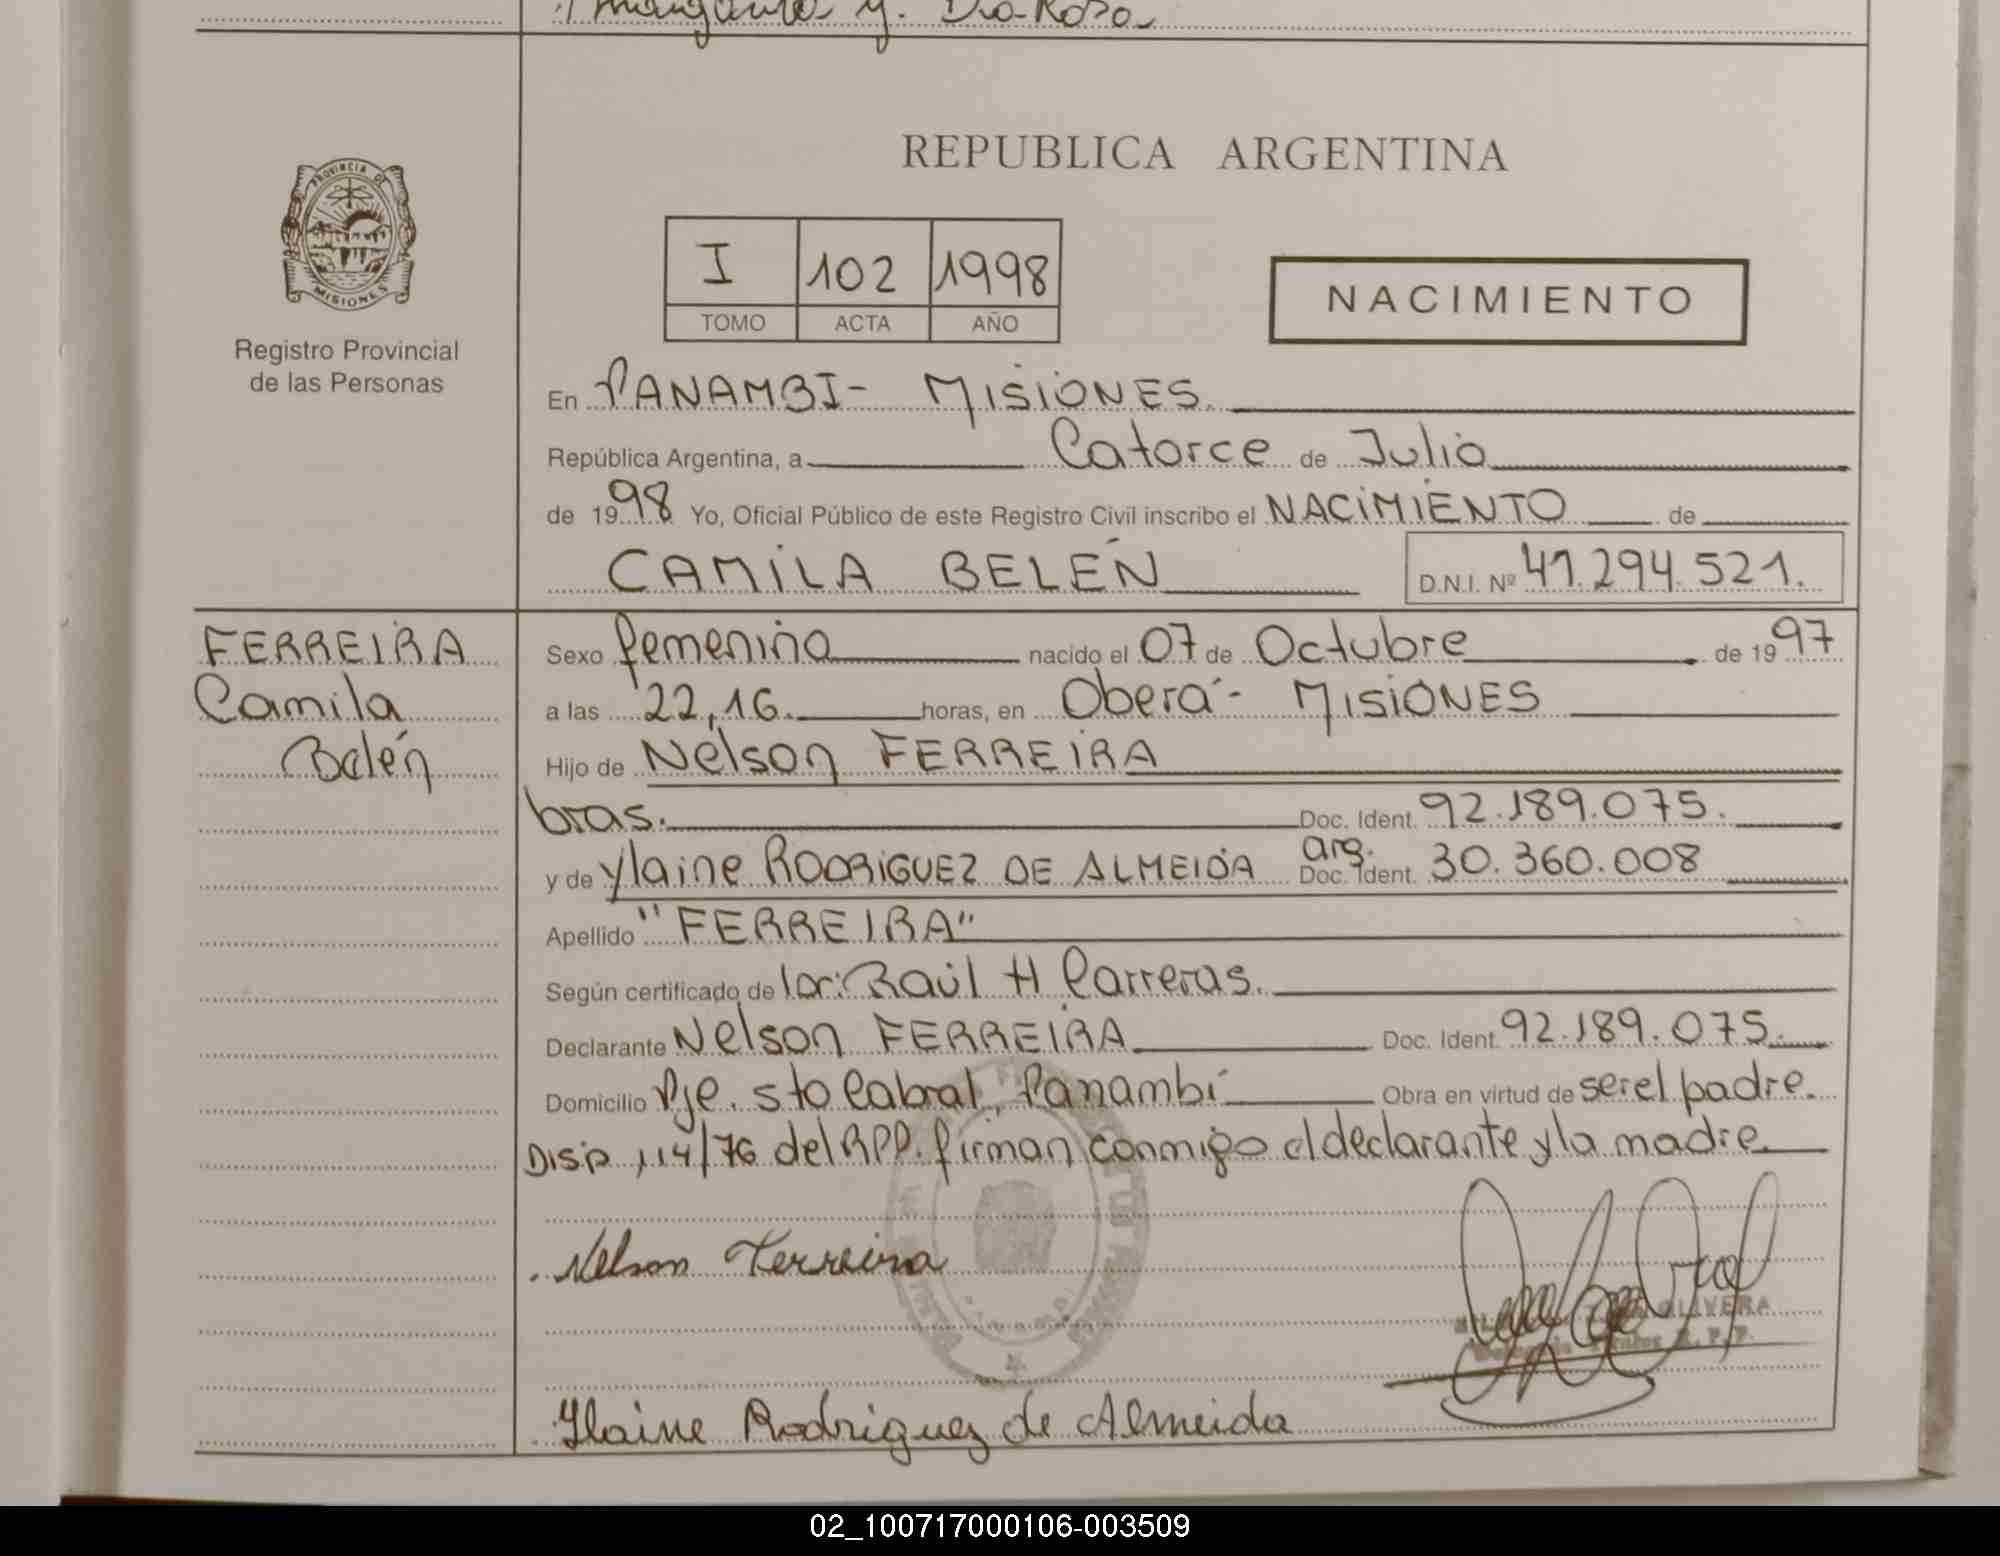 y. Da Rosa
PROVINCIA DE
MISIONES
Registro Provincial
de las Personas
REPUBLICA ARGENTINA
I 102 1998
TOMO ACTA AÑO
NACIMIENTO
En PANAMBI- MISIONES
República Argentina, a Catorce de Julio
de 1998 Yo, Oficial Público de este Registro Civil inscribo el NACIMIENTO de
CAMILA BELÉN D.N.I. Nº 41.294.521.
FERREIRA
Camila
Belén
Sexo femenina nacido el 07 de Octubre de 1997
a las 22,16. horas, en Oberá- MISIONES
Hijo de Nélson FERREIRA
bras. Doc. Ident. 92.189.075.
y de Ylaine RODRIGUEZ DE ALMEIDA arg. Doc. Ident. 30.360.008
Apellido "FERREIRA"
Según certificado de Raúl H Carreras.
Declarante Nelson FERREIRA Doc. Ident. 92.189.075.
Domicilio Pje. Sto Cabral, Panambí Obra en virtud de ser el padre.
Disp. 114/76 del RPP. firman conmigo el declarante y la madre
Nelson Ferreira
OLIVERA
R. P. P.
Ylaine Rodriguez de Almeida
02_100717000106-003509